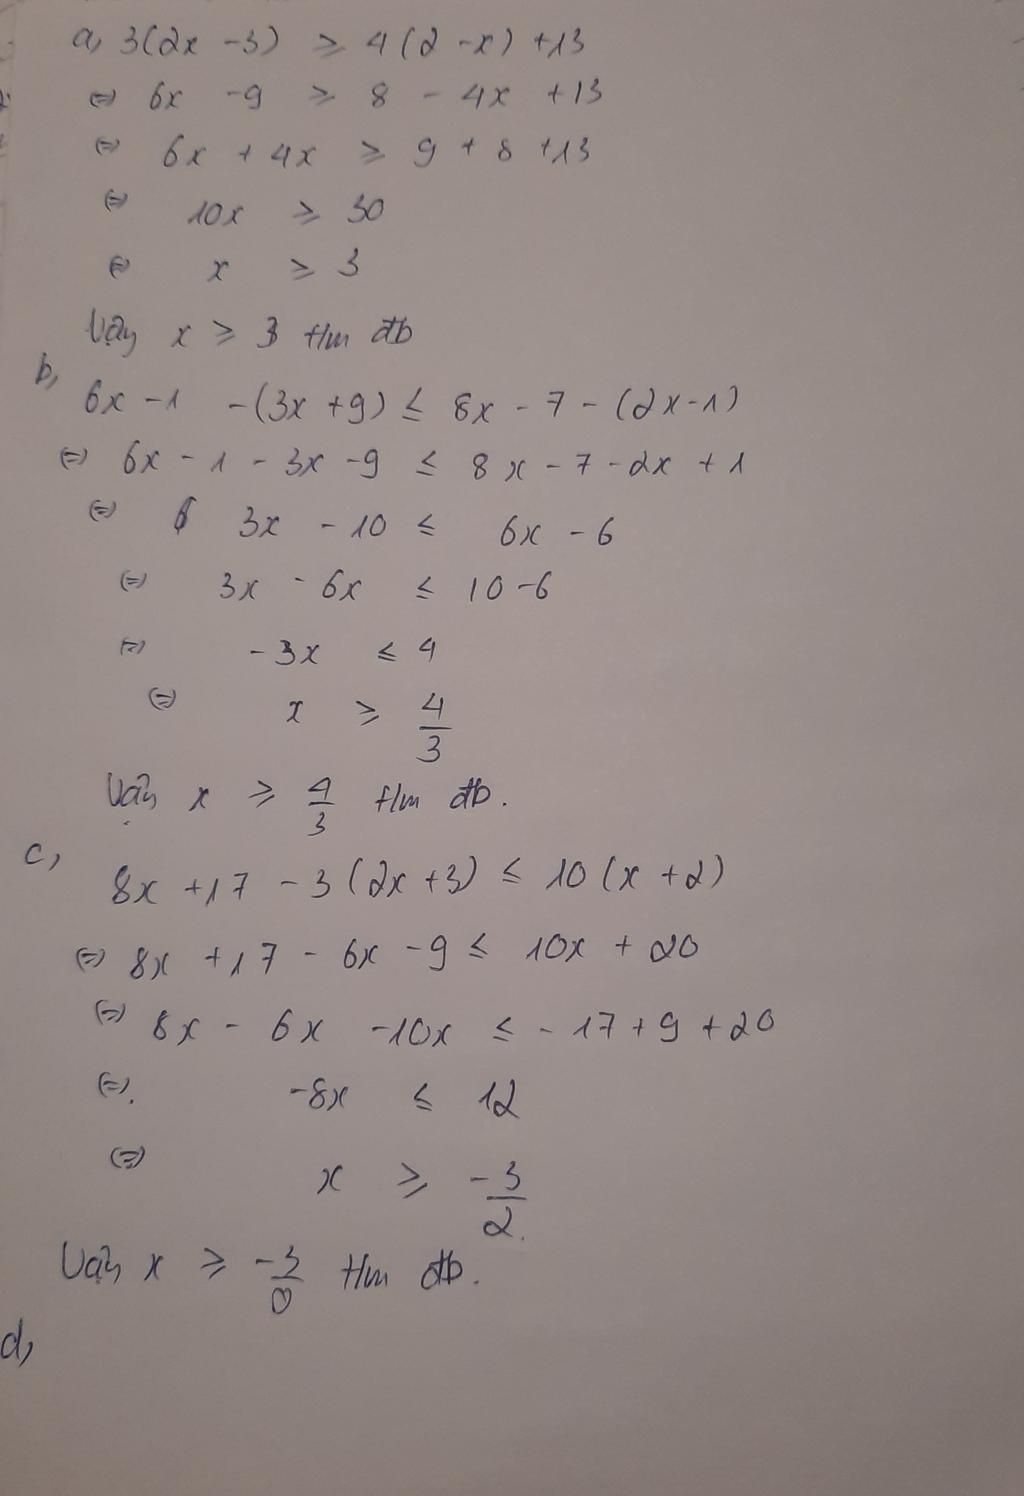 a, 3(2x - 3) ≥ 4(2 - x) + 13
⇔ 6x - 9 ≥ 8 - 4x + 13
⇔ 6x + 4x ≥ 9 + 8 + 13
⇔ 10x ≥ 30
⇔ x ≥ 3
Vậy x ≥ 3 thm đb
b,
6x - 1 - (3x + 9) ≤ 8x - 7 - (2x - 1)
⇔ 6x - 1 - 3x - 9 ≤ 8x - 7 - 2x + 1
⇔ 3x - 10 ≤ 6x - 6
⇔ 3x - 6x ≤ 10 - 6
⇔ -3x ≤ 4
⇔ x ≥ 4/3
Vậy x ≥ 4/3 thm đb.
c,
8x + 17 - 3(2x + 3) ≤ 10(x + 2)
⇔ 8x + 17 - 6x - 9 ≤ 10x + 20
⇔ 8x - 6x - 10x ≤ -17 + 9 + 20
⇔. -8x ≤ 12
⇔ x ≥ -3/2.
Vậy x ≥ -3/0 thm đb.
d,